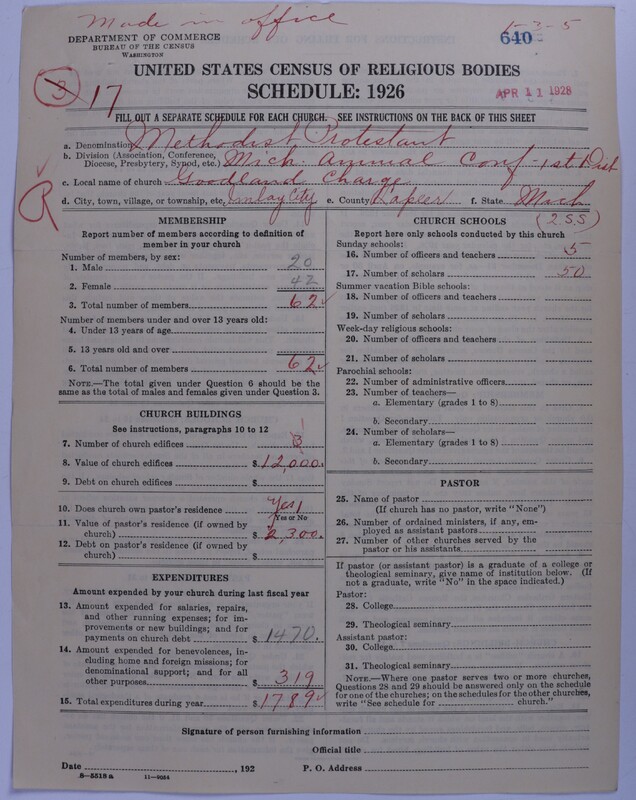 Made in office
1-3-5
DEPARTMENT OF COMMERCE
BUREAU OF THE CENSUS
WASHINGTON
640
UNITED STATES CENSUS OF RELIGIOUS BODIES
SCHEDULE: 1926
APR 11 1928
3 17
FILL OUT A SEPARATE SCHEDULE FOR EACH CHURCH. SEE INSTRUCTIONS ON THE BACK OF THIS SHEET
a. Denomination Methodist Protestant
b. Division (Association, Conference, Diocese, Presbytery, Synod, etc.) Mich. Annual Conf - 1st Dist
c. Local name of church Goodland Charge
d. City, town, village, or township, etc. Imlay City e. County Lapeer f. State Mich
R
MEMBERSHIP
Report number of members according to definition of
member in your church
Number of members, by sex:
1. Male 20
2. Female 42
3. Total number of members 62
Number of members under and over 13 years old:
4. Under 13 years of age
5. 13 years old and over
6. Total number of members 62
NOTE.—The total given under Question 6 should be
same as the total of males and females given under Question 3.
CHURCH BUILDINGS
See instructions, paragraphs 10 to 12
7. Number of church edifices 3
8. Value of church edifices $12,000.
9. Debt on church edifices $
10. Does church own pastor's residence Yes 1
Yes or No
11. Value of pastor's residence (if owned by
church) $ 2,300.
12. Debt on pastor's residence (if owned by
church) $
EXPENDITURES
Amount expended by your church during last fiscal year
13. Amount expended for salaries, repairs,
and other running expenses; for im-
provements or new buildings; and for
payments on church debt $ 1470.
14. Amount expended for benevolences, in-
cluding home and foreign missions; for
denominational support; and for all
other purposes $ 319
15. Total expenditures during year $ 1789
CHURCH SCHOOLS (2 S.S)
Report here only schools conducted by this church
Sunday schools:
16. Number of officers and teachers 5
17. Number of scholars 50
Summer vacation Bible schools:
18. Number of officers and teachers
19. Number of scholars
Week-day religious schools:
20. Number of officers and teachers
21. Number of scholars
Parochial schools:
22. Number of administrative officers
23. Number of teachers—
a. Elementary (grades 1 to 8)
b. Secondary
24. Number of scholars—
a. Elementary (grades 1 to 8)
b. Secondary
PASTOR
25. Name of pastor
(If church has no pastor, write "None")
26. Number of ordained ministers, if any, em-
ployed as assistant pastors
27. Number of other churches served by the
pastor or his assistants
If pastor (or assistant pastor) is a graduate of a college or
theological seminary, give name of institution below. (If
not a graduate, write "No" in the space indicated.)
Pastor:
28. College
29. Theological seminary
Assistant pastor:
30. College
31. Theological seminary
NOTE.—Where one pastor serves two or more churches,
Questions 28 and 29 should be answered only on the schedule
for one of the churches; on the schedules for the other churches,
write "See schedule for church."
Signature of person furnishing information
Official title
Date , 192 P. O. Address
8-5518 a 11-9034